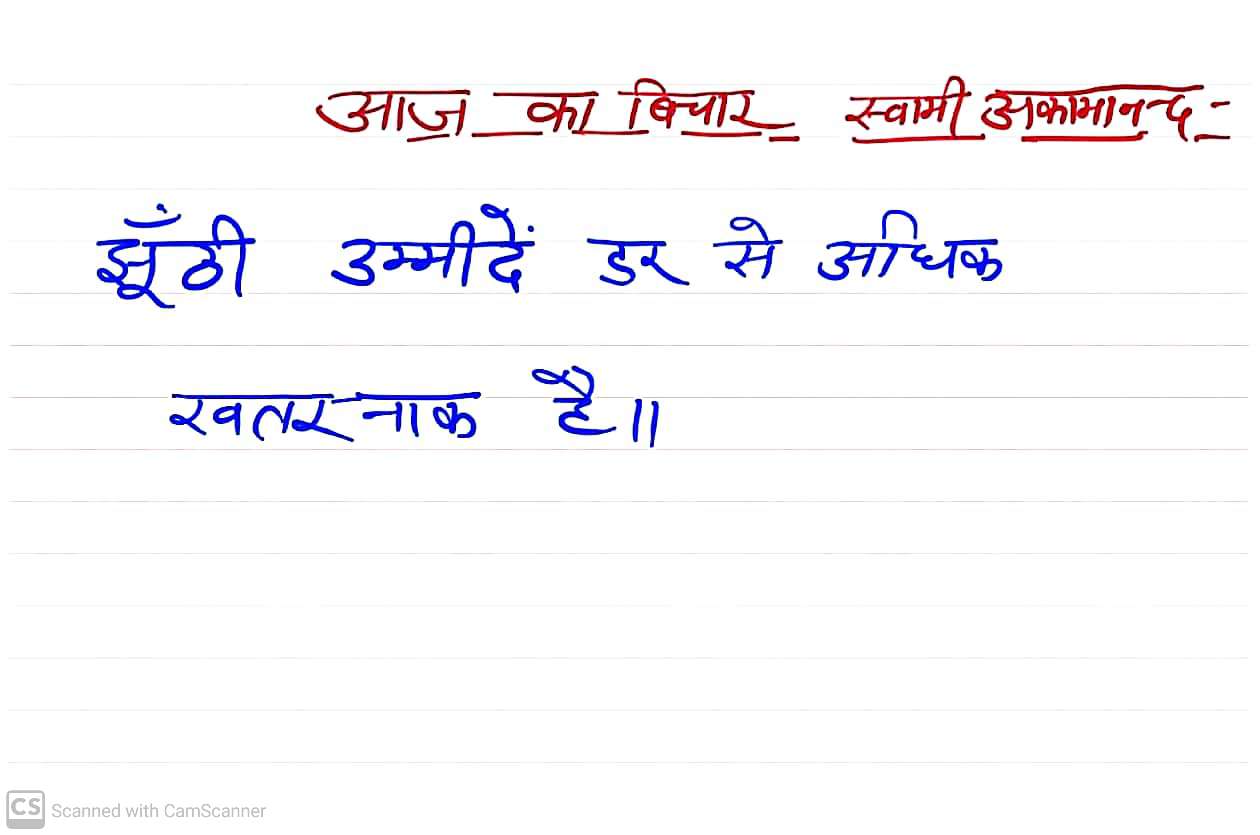 आज का बिचार स्वामी अकामानन्द -
झूँठी उम्मीदें डर से अधिक
खतरनाक है॥
CS Scanned with CamScanner